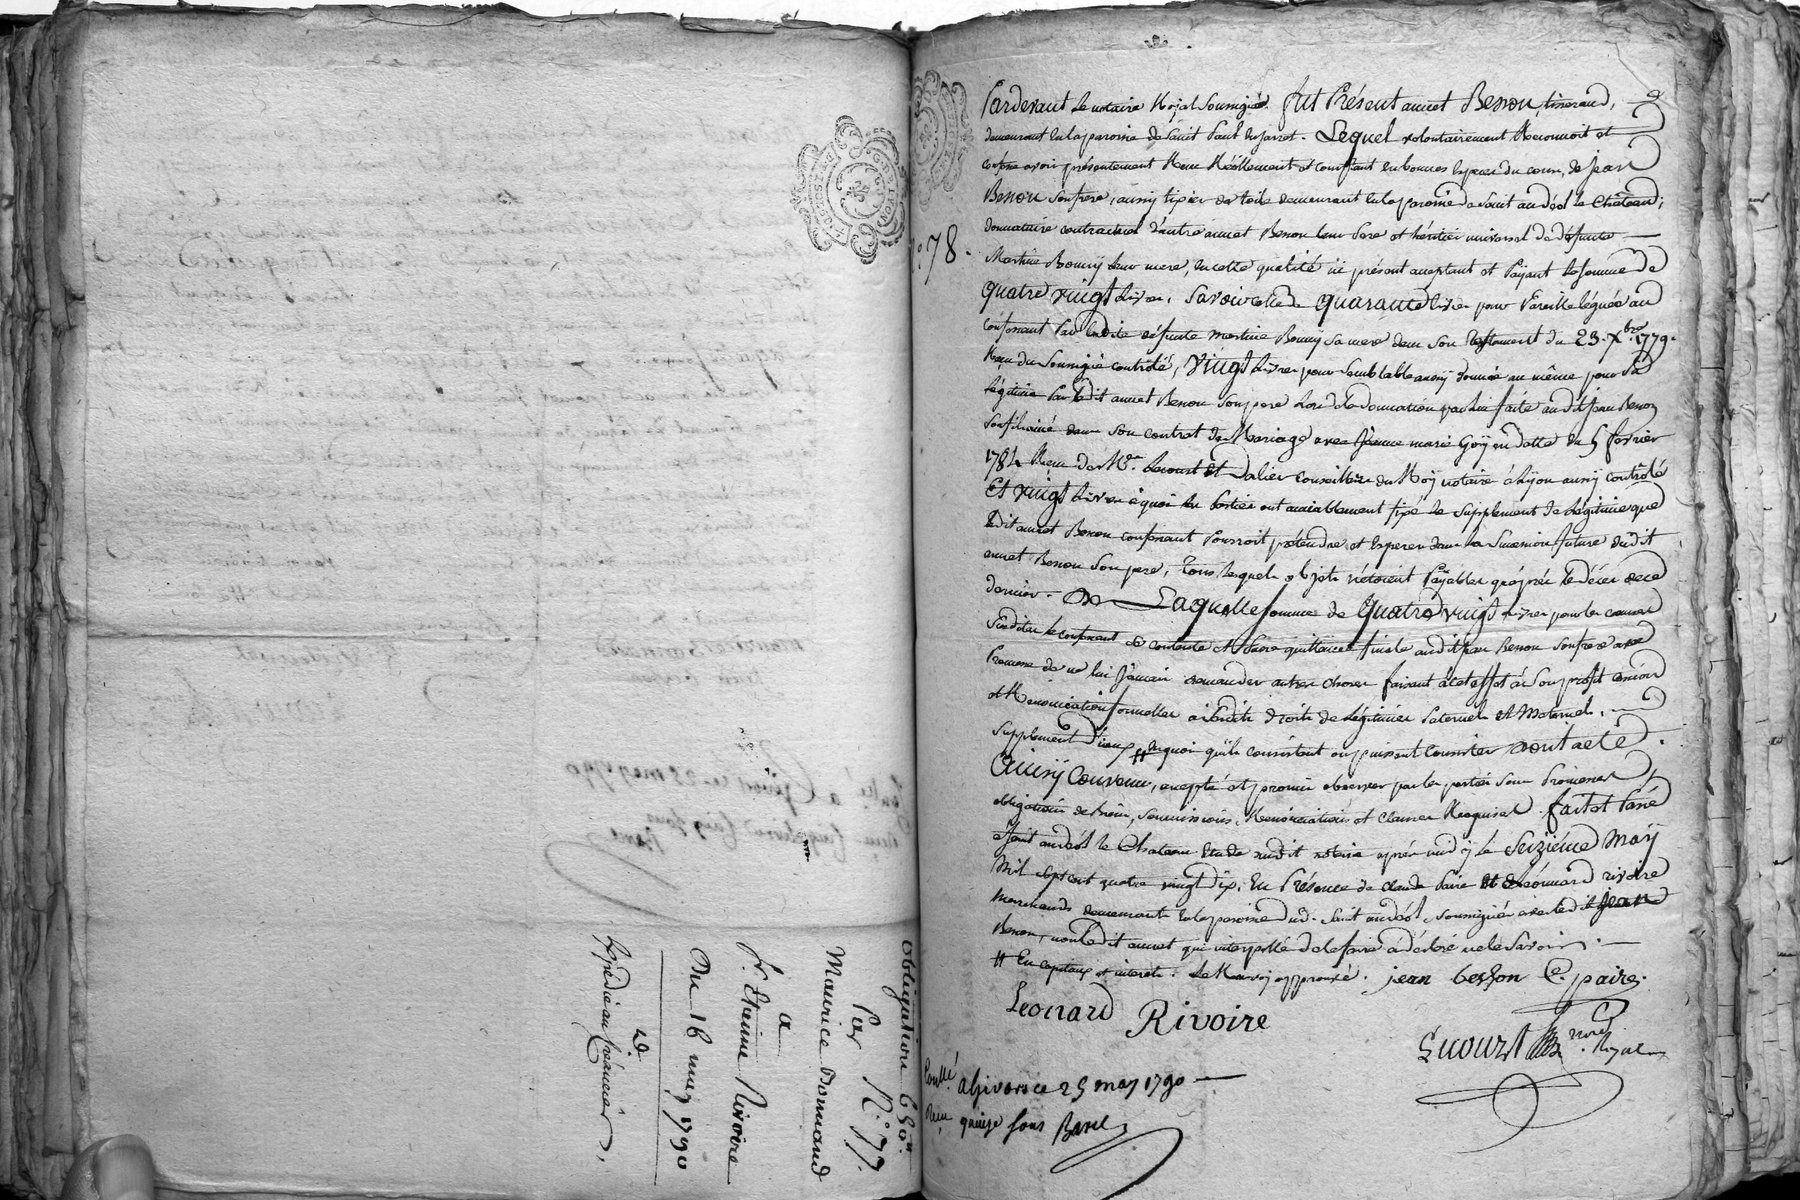 obligation 650#
R. n° 77.
Par
Maurice Bonnand
a
Sr. Etienne Rivoire
Du 16 may 1790
Expedié au créancier
n° 78.
Pardevant le notaire Royal soussigné. fut Présent annet Besson, tisserand,
demeurant en la paroisse de saint Paul en jarret. Lequel volontairement Reconnoit et
confesse avoir présentement Reçu Réellement et comptant en bonnes especes du cours, de jean
Besson son frere, aussy tixier de toile demeurant en la paroisse de saint andéol le Château;
donnataire contractuel d'autre annet Besson leur Pere et héritier universel de défunte
Martine Bourry leur mere, en cette qualité ici présent acceptant et Payant la somme de
quatre vingt Livres, savoir celle de quarante livres pour Pareille léguée au
confessant Par ladite défunte Martine Bourry sa mere dans son testament du 23. Xbre. 1779.
Reçu du soussigné controlé, vingt Livres pour semblable aussy donnée au même pour sa
légitime Par ledit annet Besson son pere lors de la donnation par lui faite audit jean Besson
son fils ainé dans son contrat de Mariage avec jeanne marie Goy en datte du 5 fevrier
1784 Reçu de Me. et Dalier conseillers du Roy notaire à Lyon aussy controlé
Et vingt Livres à quoi les Parties ont amiablement fixé le supplement de Légitime que
ledit annet Besson confessant Pourroit prétendre et esperer dans la succession future dudit
annet Besson son pere, tous lesquels objets n'étoient Payables qu'après le décès de ce
dernier. De Laquelle somme de quatre vingt livres pour les causes
susdites le confessant se contente et Passe quittance finale audit jean Besson son frere avec
Promesse de ne lui jamais demander autres choses faisant à cet effet à son profit cession
et Renonciation formelles à tous droits de Légitimes Paternel et Maternel,
supplement d'iceux # en quoi qu'ils consistent ou puissent consister dont acte.
Ainsy Convenu, accepté et promis observer par les parties sous Promesses,
obligations de biens, soumissions, Renonciations et clauses Requises. fait et Passé
à saint andéol le Chateau Etude dudit notaire après midy le seizieme May
Mil sept cent quatre vingt dix, En Présence de claude Paire et de Léonard rivoire
marchands demeurants en la paroisse dud. saint andéol, soussignés avec ledit jean
Besson, non ledit annet qui interpellé de le faire a déclaré ne le savoir.
# En capitaux et interets. Le Renvoi approuvé. jean besson C. paire.
Leonard Rivoire
not. Royal
Conllé. a Givors ce 25 may 1790
Reçu quinze sous